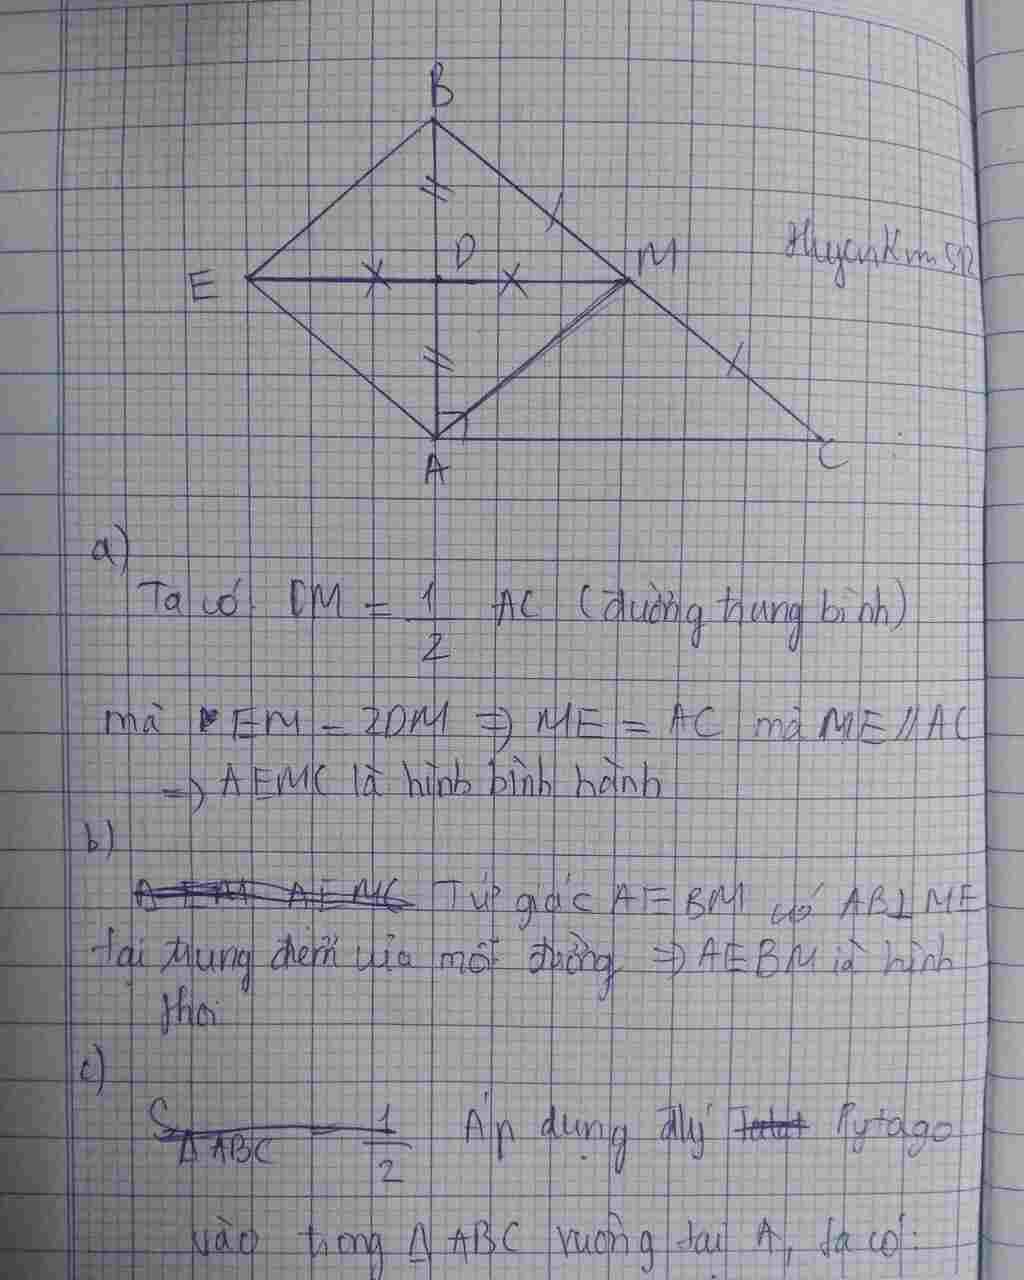 B
D
M
HuyenKm512
E
A
C
a)
Ta có DM = 1/2 AC (đường trung bình)
mà EM = 2DM => ME = AC mà ME // AC
=> AEMC là hình bình hành
b)
Tứ giác AEBM có AB⊥ME
tại trung điểm của mỗi đường => AEBM là hình
thoi
c)
S ΔABC = 1/2 Áp dụng đlý Pytago
vào trong Δ ABC vuông tại A, ta có: